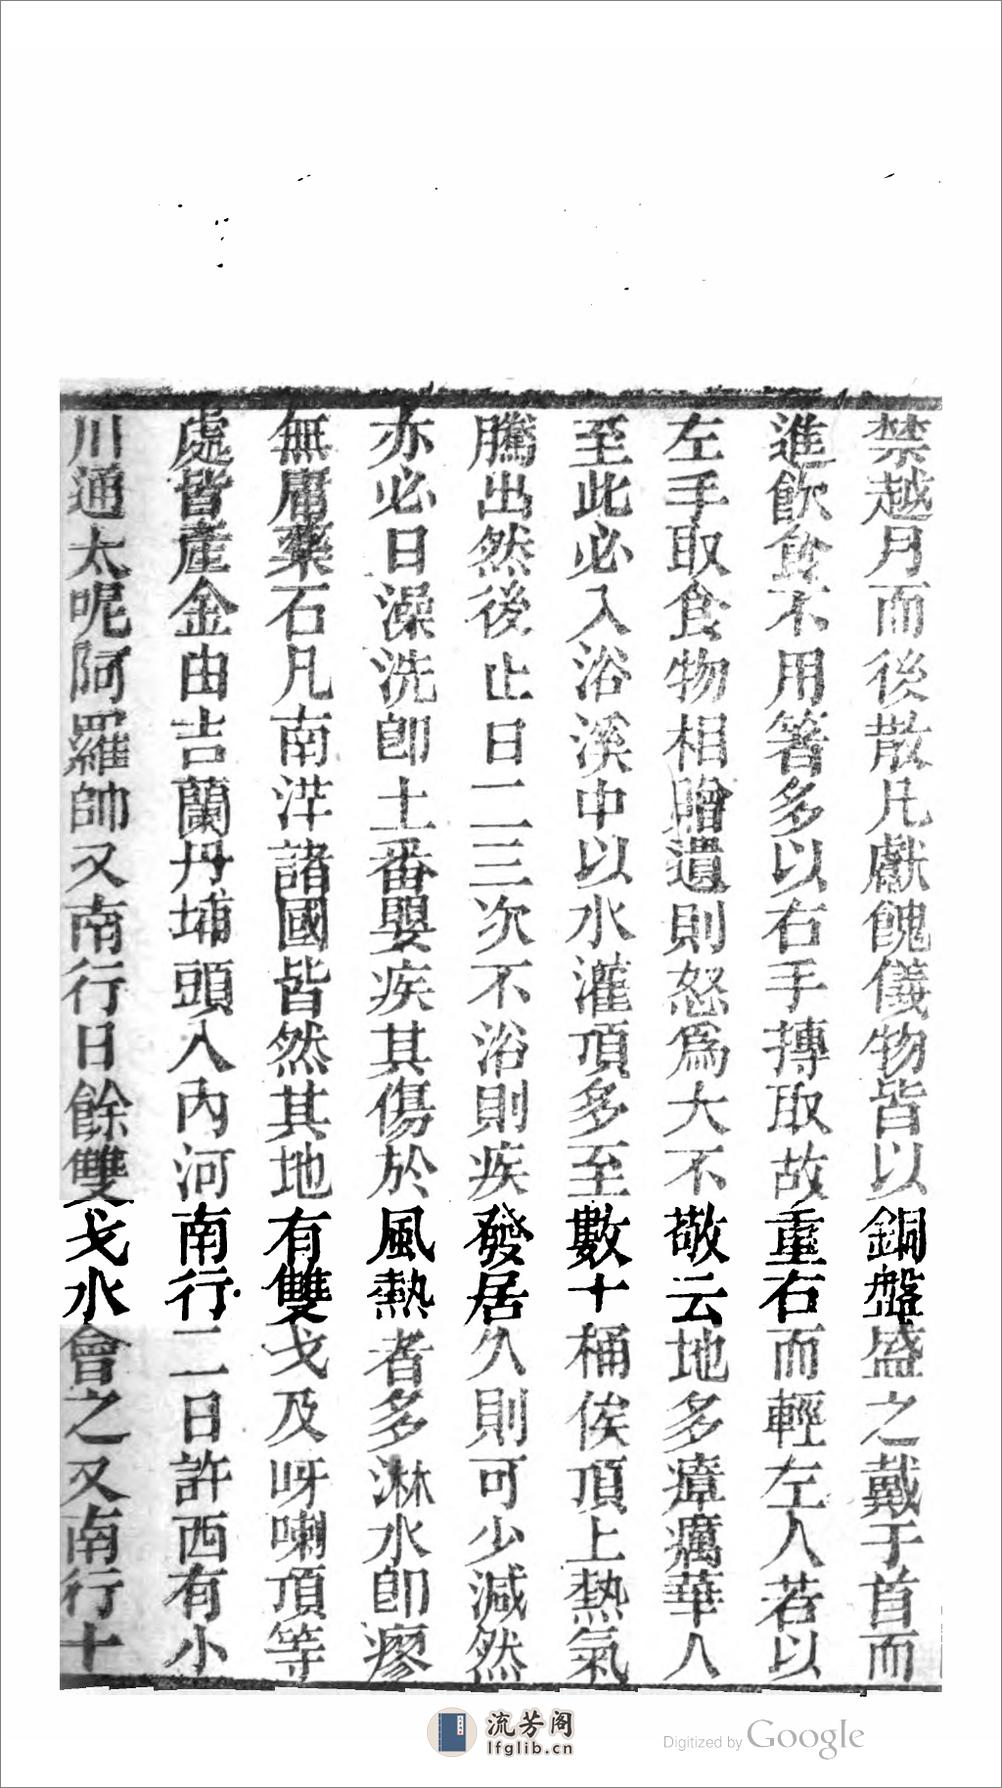 禁越月而後散凡獻餽儀物皆以銅盤盛之戴于首而
進飲食不用箸多以右手摶取故重右而輕左人若以
左手取食物相贈遺則怒爲大不敬云地多瘴癘華人
至此必入浴溪中以水灌頂多至數十桶俟頂上熱氣
騰出然後止日二三次不浴則疾發居久則可少減然
亦必日澡洗卽土番嬰疾其傷於風熱者多淋水卽瘳
無庸藥石凡南洋諸國皆然其地有雙戈及呀喇頂等
處皆產金由吉蘭丹埔頭入內河南行二日許西有小
川通太呢阿羅帥又南行日餘雙戈水會之又南行十
流芳阁
lfglib.cn
Digitized by Google